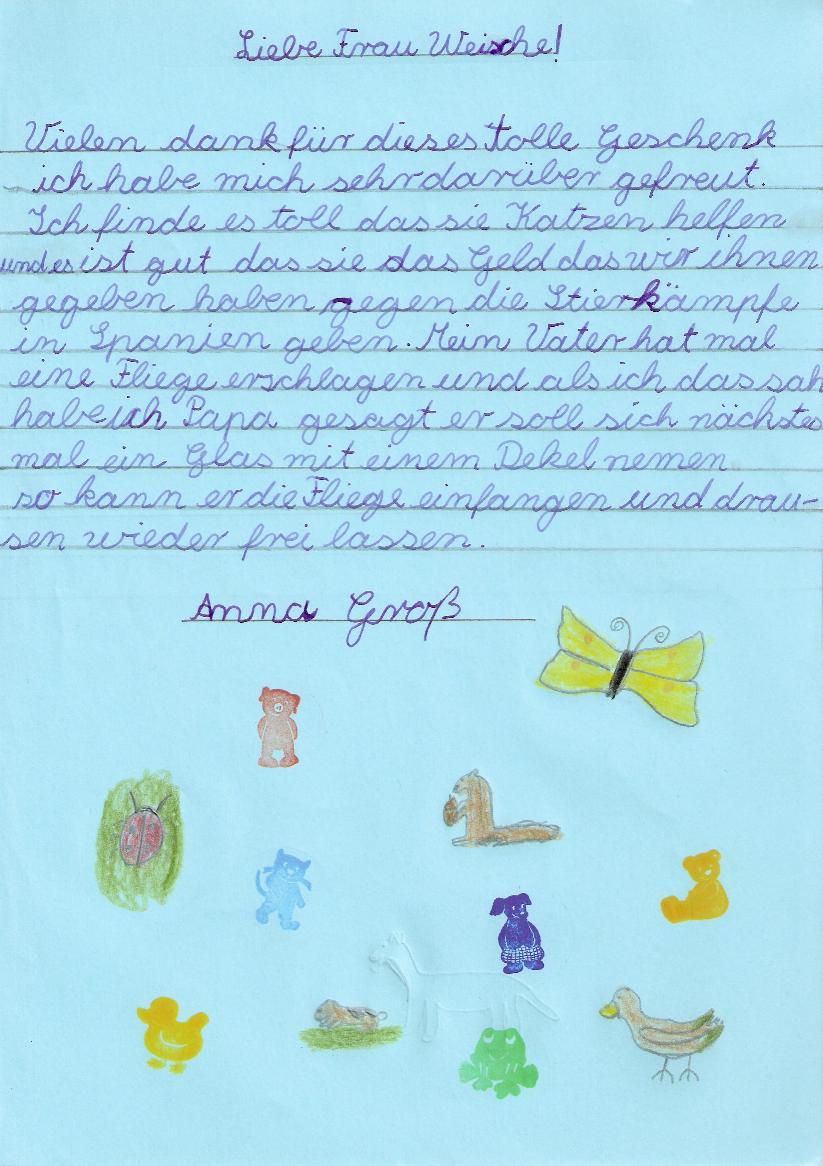 Liebe Frau Weische!
Vielen dank für dieses tolle Geschenk
ich habe mich sehr darüber gefreut.
Ich finde es toll das sie Katzen helfen
und es ist gut das sie das Geld das wir ihnen
gegeben haben gegen die Stierkämpfe
in Spanien geben. Mein Vater hat mal
eine Fliege erschlagen und als ich das sah
habe ich Papa gesagt er soll sich nächstes
mal ein Glas mit einem Dekel nemen
so kann er die Fliege einfangen und drau-
sen wieder frei lassen.
Anna Groß